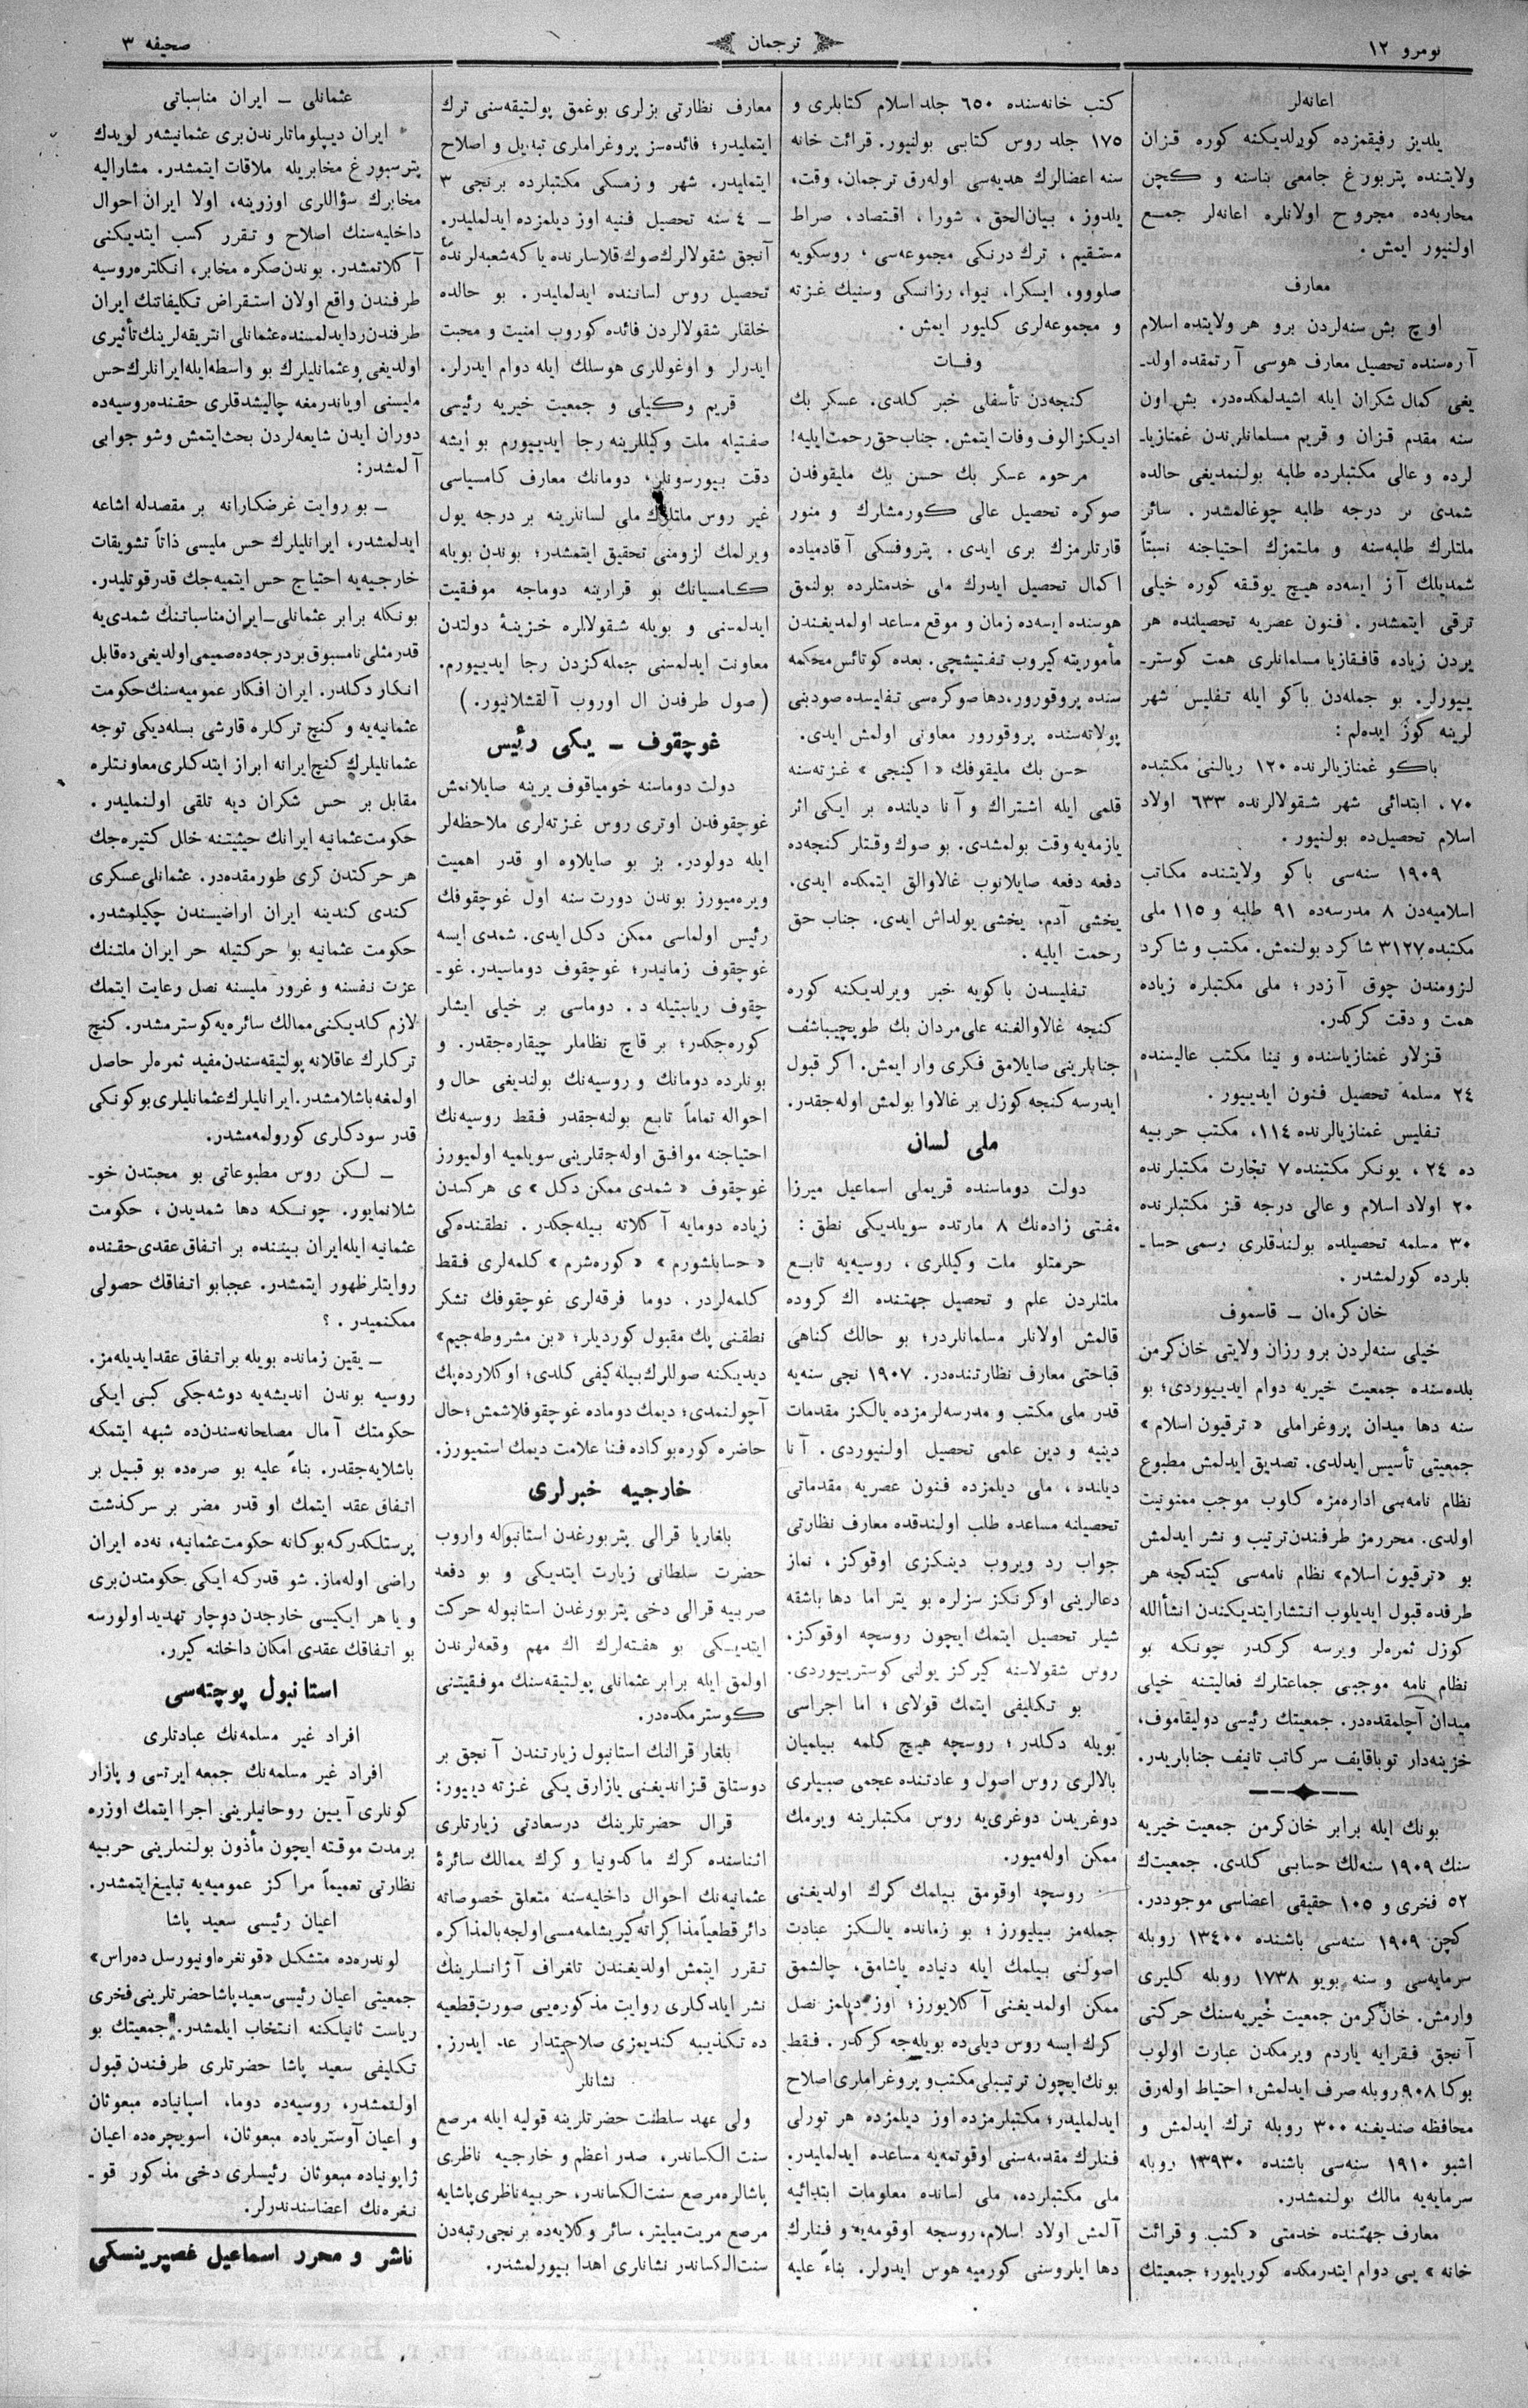 نومرو ١٢
ترجمان
صحیفه ٣
اعانه‌لر
یلدیز رفیقمزده كورلدیكنه كوره قزان
ولایتنده پتربورغ جامعی بناسنه و كچن
محاربه‌ده مجروح اولانلره اعانه‌لر جمع
اولنیور ایمش .
معارف
اوچ بش سنه‌لردن برو هر ولایتده اسلام
آره‌سنده تحصیل معارف هوسی آرتمقده اولد-
یغی كمال شكران ایله اشیدلمكده‌در. بش اون
سنه مقدم قزان و قریم مسلمانلرندن غمنازیا-
لرده و عالی مكتبلرده طلبه بولنمدیغی حالده
شمدی بر درجه طلبه چوغالمشدر . سائر
ملتلرك طلبه‌سنه و ملتمزك احتیاجنه نسبتاً
شمدیلك آز ایسه‌ده هیچ یوقغه كوره خیلی
ترقی ایتمشدر . فنون عصریه تحصیلنده هر
یردن زیاده قافقازیا مسلمانلری همت كوستر-
ییورلر. بو جمله‌دن باكو ایله تفلیس شهر
لرینه كوز ایده‌لم :
باكو غمنازیالرنده ١٢٠ ریالنی مكتبده
٧٠، ابتدائی شهر شقولالرنده ٦٣٣ اولاد
اسلام تحصیل‌ده بولنیور .
١٩٠٩ سنه‌سی باكو ولایتنده مكاتب
اسلامیه‌دن ٨ مدرسه‌ده ٩١ طلبه و ١١٥ ملی
مكتبده ٣١٢٧ شاكرد بولنمش. مكتب و شاكرد
لزومندن چوق آزدر ؛ ملی مكتبلره زیاده
همت و دقت كركدر.
قزلار غمنازیاسنده و نینا مكتب عالیسنده
٢٤ مسلمه تحصیل فنون ایدییور .
تفلیس غمنازیالرنده ١١٤، مكتب حربیه
ده ٢٤ ، یونكر مكتبنده ٧ تجارت مكتبلرنده
٢٠ اولاد اسلام و عالی درجه قز مكتبلرنده
٣٠ مسلمه تحصیلده بولندقلری رسمی حسا-
بلرده كورلمشدر .
خان‌كرمان – قاسموف
خیلی سنه‌لردن برو رزان ولایتی خان‌كرمن
بلده‌سنده جمعیت خیریه دوام ایدییوردی؛ بو
سنه دها میدان پروغراملی « ترقیون اسلام »
جمعیتی تأسیس ایدلدی. تصدیق ایدلمش مطبوع
نظام نامه‌سی اداره‌مزه كلوب موجب ممنونیت
اولدی. محررمز طرفندن ترتیب و نشر ایدلمش
بو «ترقیون اسلام» نظام نامه‌سی كیتدكجه هر
طرفده قبول ایدیلوب انتشار ایتدیكندن انشأالله
كوزل ثمره‌لر ویرسه كركدر چونكه بو
نظام نامه موجبی جماعتلرك فعالیتنه خیلی
میدان آچلمقده‌در. جمعیتك رئیسی دولیقاموف،
خزینه‌دار توباقایف سركاتب تانیف جنابلریدر.
بونك ایله برابر خان‌كرمن جمعیت خیریه
سنك ١٩٠٩ سنه‌لك حسابی كلدی. جمعیتك
٥٢ فخری و ١٠٥ حقیقی اعضاسی موجوددر.
كچن ١٩٠٩ سنه‌سی باشنده ١٣٤٠٠ روبله
سرمایه‌سی و سنه بویو ١٧٣٨ روبله كلیری
وارمش. خان‌كرمن جمعیت خیریه‌سنك حركتی
آنجق فقرایه یاردم ویرمكدن عبارت اولوب
بوكا ٩٠٨ روبله صرف ایدلمش؛ احتیاط اوله‌رق
محافظه صندیغنه ٣٠٠ روبله ترك ایدلمش و
اشبو ١٩١٠ سنه‌سی باشنده ١٣٩٣٠ روبله
سرمایه‌یه مالك بولنمشدر.
معارف جهتنده خدمتی « كتب و قرائت
خانه » یی دوام ایتدرمكده كوریلیور؛ جمعیتك
كتب خانه‌سنده ٦٥٠ جلد اسلام كتابلری و
١٧٥ جلد روس كتابی بولنیور. قرائت خانه
سنه اعضالرك هدیه‌سی اوله‌رق ترجمان، وقت،
یلدوز ، بیان‌الحق ، شورا ، اقتصاد، صراط
مستقیم ، ترك درنكی مجموعه‌سی ، روسكویه
صلووو، ایسكرا، نیوا، رزانسكی وستنیك غزته
و مجموعه‌لری كلیور ایمش .
وفات
كنجه‌دن تأسفلی خبر كلدی. عسكر بك
ادیكزالوف وفات ایتمش. جناب حق رحمت ایلیه!
مرحوم عسكر بك حسن بك ملیقوفدن
صوكره تحصیل عالی كورمشلرك و منور
قارتلرمزك بری ایدی . پتروفسكی آقادمیاده
اكمال تحصیل ایدرك ملی خدمتلرده بولنمق
هوسنده ایسه‌ده زمان و موقع مساعد اولمدیغندن
مأموریته كیروب تفتیشچی. بعده كوتائس محكمه
سنده پروقورور، دها صوكره‌سی تفلیسده صودبنی
پولاته‌سنده پروقورور معاونی اولمش ایدی.
حسن بك ملیقوفك « اكینجی » غزته‌سنه
قلمی ایله اشتراك و آنا دیلنده بر ایكی اثر
یازمه‌یه وقت بولمشدی. بو صوك وقتلر كنجه‌ده
دفعه دفعه صایلانوب غالاوالق ایتمكده ایدی.
یخشی آدم، یخشی یولداش ایدی. جناب حق
رحمت ایلیه .
تفلیسدن باكویه خبر ویرلدیكنه كوره
كنجه غالاوالغنه علی مردان بك طوپچیباشف
جنابلرینی صایلامق فكری وار ایمش. اكر قبول
ایدرسه كنجه كوزل بر غالاوا بولمش اوله‌جقدر.
ملی لسان
دولت دوماسنده قریملی اسماعیل میرزا
مفتی زاده‌نك ٨ مارتده سویلدیكی نطق :
حرمتلو ملت وكیللری ، روسیه‌یه تابع
ملتلردن علم و تحصیل جهتنده اك كروده
قالمش اولانلر مسلمانلردر؛ بو حالك كناهی
قباحتی معارف نظارتنده‌در. ١٩٠٧ نجی سنه‌یه
قدر ملی مكتب و مدرسه‌لرمزده یالكز مقدمات
دینیه و دین علمی تحصیل اولنیوردی . آنا
دیلنده ، ملی دیلمزده فنون عصریه مقدماتی
تحصیلنه مساعده طلب اولندقده معارف نظارتی
جواب رد ویروب دینكزی اوقوكز ، نماز
دعالرینی اوكرنكز سزلره بو یتر اما دها باشقه
شیلر تحصیل ایتمك ایچون روسچه اوقوكز.
روس شقولاسنه كیركز یولنی كوستریپوردی.
بو تكلیفی ایتمك قولای ؛ اما اجراسی
بویله دكلدر ؛ روسچه هیچ كلمه بیلمیان
بالالری روس اصول و عادتنده عجمی صبیلری
دوغریدن دوغری‌یه روس مكتبلرینه ویرمك
ممكن اوله‌میور.
روسچه اوقومق بیلمك كرك اولدیغنی
جمله‌مز بیلیورز ؛ بو زمانده یالكز عبادت
اصولنی بیلمك ایله دنیاده یاشامق، چالشمق
ممكن اولمدیغنی آكلایورز؛ اوز دیلمز نصل
كرك ایسه روس دیلی‌ده بویله‌جه كركدر . فقط
بونك ایچون ترتیبلی مكتب و پروغراملری اصلاح
ایدلملیدر؛ مكتبلرمزده اوز دیلمزده هر تورلی
فنلرك مقدمه‌سنی اوقوتمه‌یه مساعده ایدلملیدر.
ملی مكتبلرده، ملی لسانده معلومات ابتدائیه
آلمش اولاد اسلام، روسچه اوقومه‌یه و فنلرك
دها ایلروسنی كورمیه هوس ایدرلر. بناءً علیه
معارف نظارتی بزلری بوغمق پولتیقه‌سنی ترك
ایتملیدر؛ فائده‌سز پروغراملری تبدیل و اصلاح
ایتملیدر. شهر و زمسكی مكتبلرده برنجی ٣
– ٤ سنه تحصیل فنیه اوز دیلمزده ایدلملیدر.
آنجق شقولالرك صوك قلاسلرنده یاكه شعبه‌لرنده
تحصیل روس لساننده ایدلملیدر. بو حالده
خلقلر شقولالردن فائده كوروب امنیت و محبت
ایدرلر و اوغوللری هوسلك ایله دوام ایدرلر.
قریم وكیلی و جمعیت خیریه رئیسی
صفتیله ملت وكیللرینه رجا ایدییورم بو ایشه
دقت بیورسونلر، دومانك معارف كامسیاسی
غیر روس ملتلرك ملی لسانلرینه بر درجه یول
ویرلمك لزومنی تحقیق ایتمشدر؛ بوندن بویله
كامسیانك بو قرارینه دوماجه موفقیت
ایدلمسنی و بویله شقولالره خزینهٔ دولتدن
معاونت ایدلمسنی جمله‌كزدن رجا ایدییورم.
( صول طرفدن ال اوروب آلقشلانیور. )
غوچقوف – یكی رئیس
دولت دوماسنه خومیاقوف یرینه صایلانمش
غوچقوفدن اوتری روس غزته‌لری ملاحظه‌لر
ایله دولودر. بز بو صایلاوه او قدر اهمیت
ویره‌میورز بوندن دورت سنه اول غوچقوفك
رئیس اولماسی ممكن دكل ایدی. شمدی ایسه
غوچقوف زمانیدر؛ غوچقوف دوماسیدر. غو-
چقوف ریاستیله د. دوماسی بر خیلی ایشلر
كوره‌جكدر؛ بر قاچ نظاملر چیقاره‌جقدر. و
بونلرده دومانك و روسیه‌نك بولندیغی حال و
احواله تماماً تابع بولنه‌جقدر فقط روسیه‌نك
احتیاجنه موافق اوله‌جقلرینی سویلمیه اولمیورز
غوچقوف « شمدی ممكن دكل » ی هركسدن
زیاده دومایه آكلاته بیله‌جكدر. نطقنده‌كی
« حسابلشورم » « كوره‌شرم » كلمه‌لری فقط
كلمه‌لردر. دوما فرقه‌لری غوچقوفك تشكر
نطقنی پك مقبول كوردیلر؛ «بن مشروطه‌جیم»
دیدیكنه صوللرك بیله كیفی كلدی؛ اوكلارده پك
آچولنمدی؛ دیمك دوماده غوچقوفلاشمش؛ حال
حاضره كوره بوكاده فنا علامت دیمك استمیورز.
خارجیه خبرلری
بلغاریا قرالی پتربورغدن استانبوله واروب
حضرت سلطانی زیارت ایتدیكی و بو دفعه
صربیه قرالی دخی پتربورغدن استانبوله حركت
ایتدیكی بو هفته‌لرك اك مهم وقعه‌لرندن
اولمق ایله برابر عثمانلی پولتیقه‌سنك موفقیتنی
كوسترمكده‌در.
بلغار قرالنك استانبول زیارتندن آنجق بر
دوستلق قزاندیغنی یازارق یكی غزته دییور:
قرال حضرتلرینك درسعادتی زیارتلری
اثناسنده كرك ماكدونیا و كرك ممالك سائرهٔ
عثمانیه‌نك احوال داخلیه‌سنه متعلق خصوصاته
دائر قطعیاً مذاكراته كیریشلمه‌مسی اولجه بالمذاكره
تقرر ایتمش اولدیغندن تلغراف آژانسلرینك
نشر ایلدكلری روایت مذكوره‌یی صورت قطعیه
ده تكذیبه كندیمزی صلاحیتدار عد ایدرز.
نشانلر
ولی عهد سلطنت حضرتلرینه قولیه ایله مرصع
سنت الكساندر، صدر اعظم و خارجیه ناظری
پاشالره مرصع سنت الكساندر، حربیه ناظری پاشایه
مرصع مریت میلیتر، سائر وكلایه‌ده برنجی رتبه‌دن
سنت الكساندر نشانلری اهدا بیورلمشدر.
عثمانلی – ایران مناسباتی
ایران دیپلوماتلرندن بری عثمانیشه‌ر لویدك
پترسبورغ مخابریله ملاقات ایتمشدر. مشارالیه
مخابرك سؤاللری اوزرینه، اولا ایران احوال
داخلیه‌سنك اصلاح و تقرر كسب ایتدیكنی
آكلاتمشدر. بوندن صكره مخابر، انكلتره روسیه
طرفندن واقع اولان استقراض تكلیفاتنك ایران
طرفندن رد ایدلمسنده عثمانلی انتریقه‌لرینك تأثیری
اولدیغی و عثمانلیلرك بو واسطه ایله ایرانلرك حس
ملیسنی اویاندرمغه چالیشدقلری حقنده روسیه‌ده
دوران ایدن شایعه‌لردن بحث ایتمش وشو جوابی
آلمشدر:
– بو روایت غرضكارانه بر مقصدله اشاعه
ایدلمشدر، ایرانلیلرك حس ملیسی ذاتاً تشویقات
خارجیه‌یه احتیاج حس ایتمیه‌جك قدر قوتلیدر.
بونكله برابر عثمانلی–ایران مناسباتنك شمدی‌یه
قدر مثلی نامسبوق بر درجه‌ده صمیمی اولدیغی ده قابل
انكار دكلدر. ایران افكار عمومیه‌سنك حكومت
عثمانیه‌یه و كنج تركلره قارشی بسله‌دیكی توجه
عثمانلیلرك كنج ایرانه ابراز ایتدكلری معاونتلره
مقابل بر حس شكران دیه تلقی اولنملیدر .
حكومت عثمانیه ایرانك حیثیتنه خلل كتیره‌جك
هر حركتدن كری طورمقده‌در. عثمانلی عسكری
كندی كندینه ایران اراضیسندن چكیلمشدر.
حكومت عثمانیه بو حركتیله حر ایران ملتنك
عزت نفسنه و غرور ملیسنه نصل رعایت ایتمك
لازم كلدیكنی ممالك سائره‌یه كوسترمشدر. كنج
تركلرك عاقلانه پولتیقه‌سندن مفید ثمره‌لر حاصل
اولمغه باشلامشدر. ایرانلیلرك عثمانلیلری بوكونكی
قدر سودكلری كورولمه‌مشدر.
– لكن روس مطبوعاتی بو محبتدن خو-
شلانمایور. چونكه دها شمدیدن، حكومت
عثمانیه ایله ایران بیننده بر اتفاق عقدی حقنده
روایتلر ظهور ایتمشدر. عجبا بو اتفاقك حصولی
ممكنمیدر . ؟
– یقین زمانده بویله بر اتفاق عقد ایدیله‌مز.
روسیه بوندن اندیشه‌یه دوشه‌جكی كبی ایكی
حكومتك آمال مصلحانه‌سندن‌ده شبهه ایتمكه
باشلایه‌جقدر. بناءً علیه بو صره‌ده بو قبیل بر
اتفاق عقد ایتمك او قدر مضر بر سركذشت
پرستلكدركه بوكا نه حكومت عثمانیه، نه‌ده ایران
راضی اوله‌ماز. شو قدركه ایكی حكومتدن بری
و یا هر ایكیسی خارجدن دوچار تهدید اولورسه
بو اتفاقك عقدی امكان داخلنه كیرر.
استانبول پوچته‌سی
افراد غیر مسلمه‌نك عبادتلری
افراد غیر مسلمه‌نك جمعه ایرتسی و پازار
كونلری آیین روحانیلرینی اجرا ایتمك اوزره
بر مدت موقته ایچون مأذون بولنملرینی حربیه
نظارتی تعمیماً مراكز عمومیه‌یه تبلیغ ایتمشدر.
اعیان رئیسی سعید پاشا
لوندره‌ده متشكل «قونغره اونیورسل ده‌راس»
جمعیتی اعیان رئیسی سعید پاشا حضرتلرینی فخری
ریاست ثانیلكنه انتخاب ایلمشدر. جمعیتك بو
تكلیفی سعید پاشا حضرتلری طرفندن قبول
اولنمشدر، روسیه‌ده دوما، اسپانیاده مبعوثان
و اعیان آوستریاده مبعوثان، اسویچره‌ده اعیان
ژاپونیاده مبعوثان رئیسلری دخی مذكور قو-
نغره‌نك اعضاسندندرلر.
ناشر و محرر اسماعیل غصپرینسكی